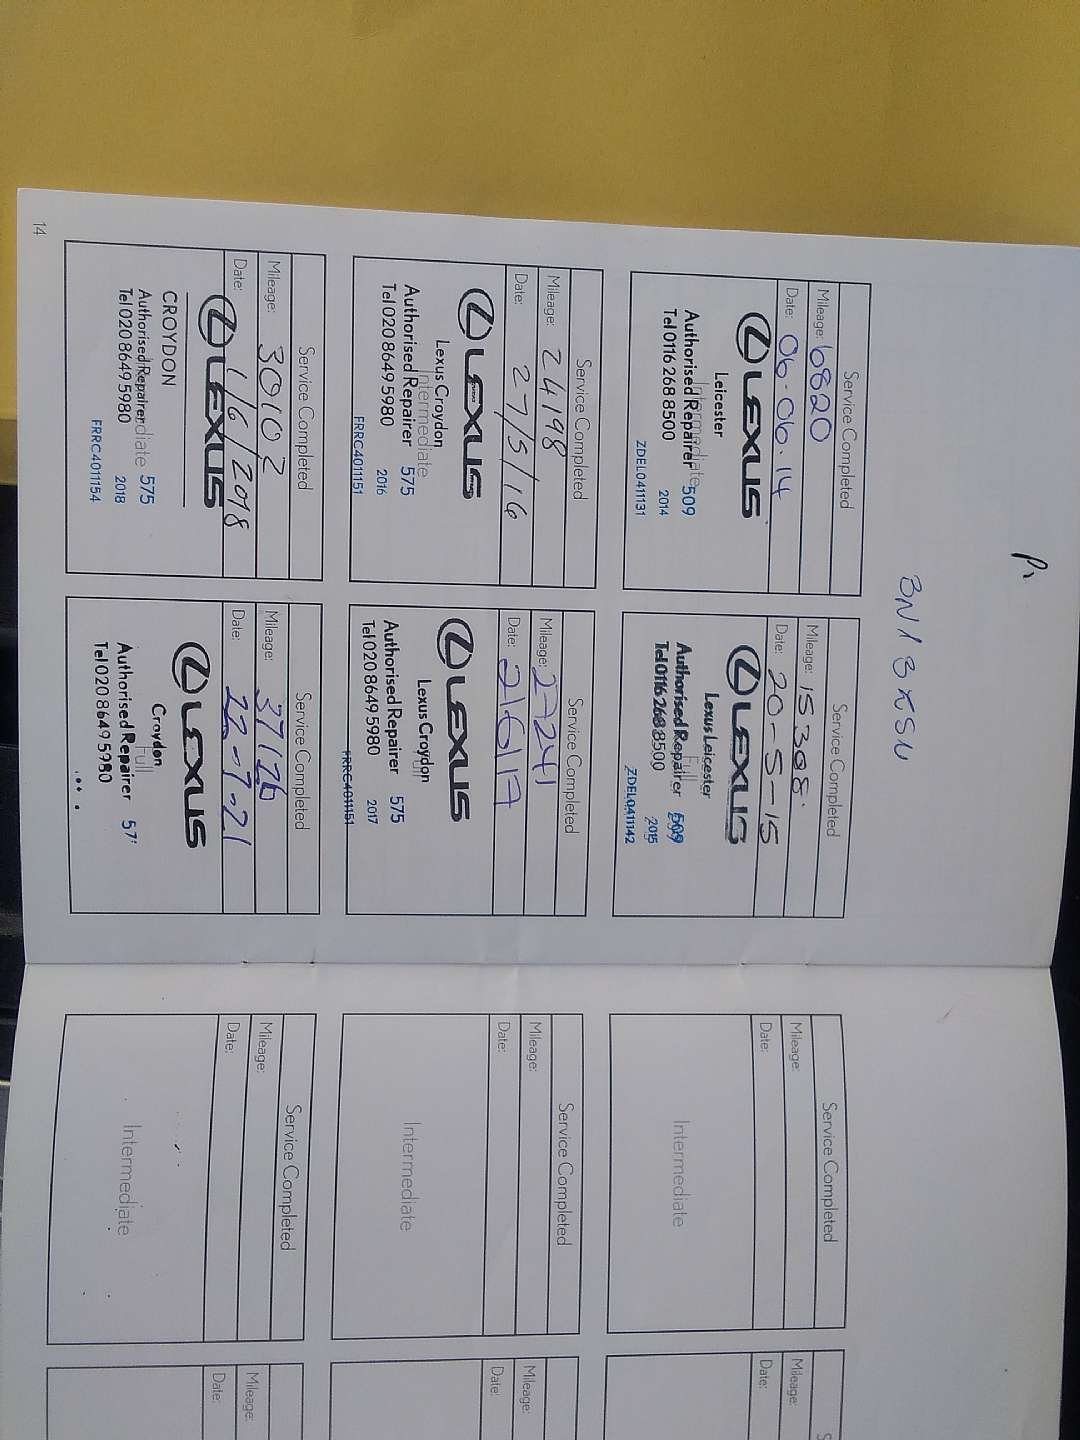 BN13XSU
Service Completed
Mileage: 6820
Date: 06-06-14
LEXUS
Leicester
Intermediate
Authorised Repairer 509
Tel 0116 268 8500 2014
ZDEL0411131
Service Completed
Mileage: 15308
Date: 20-5-15
LEXUS
Lexus Leicester
Full
Authorised Repairer 509
Tel 0116 268 8500 2015
ZDEL0411142
Service Completed
Mileage: 24198
Date: 27/5/16
LEXUS
Lexus Croydon
Intermediate
Authorised Repairer 575
Tel 020 8649 5980 2016
FRRC4011151
Service Completed
Mileage: 27241
Date: 216117
LEXUS
Lexus Croydon
Full
Authorised Repairer 575
Tel 020 8649 5980 2017
FRRC4011151
Service Completed
Mileage: 30102
Date: 1/6/2018
LEXUS
CROYDON
Intermediate
Authorised Repairer 575
Tel 020 8649 5980 2018
FRRC4011154
Service Completed
Mileage: 37126
Date: 22-7-21
LEXUS
Croydon
Full
Authorised Repairer 57
Tel 020 8649 5980
14
Service Completed
Mileage:
Date:
Intermediate
Service Completed
Mileage:
Date:
Intermediate
Service Completed
Mileage:
Date:
Intermediate
Mileage:
Date:
Mileage:
Date:
Mileage:
Date: